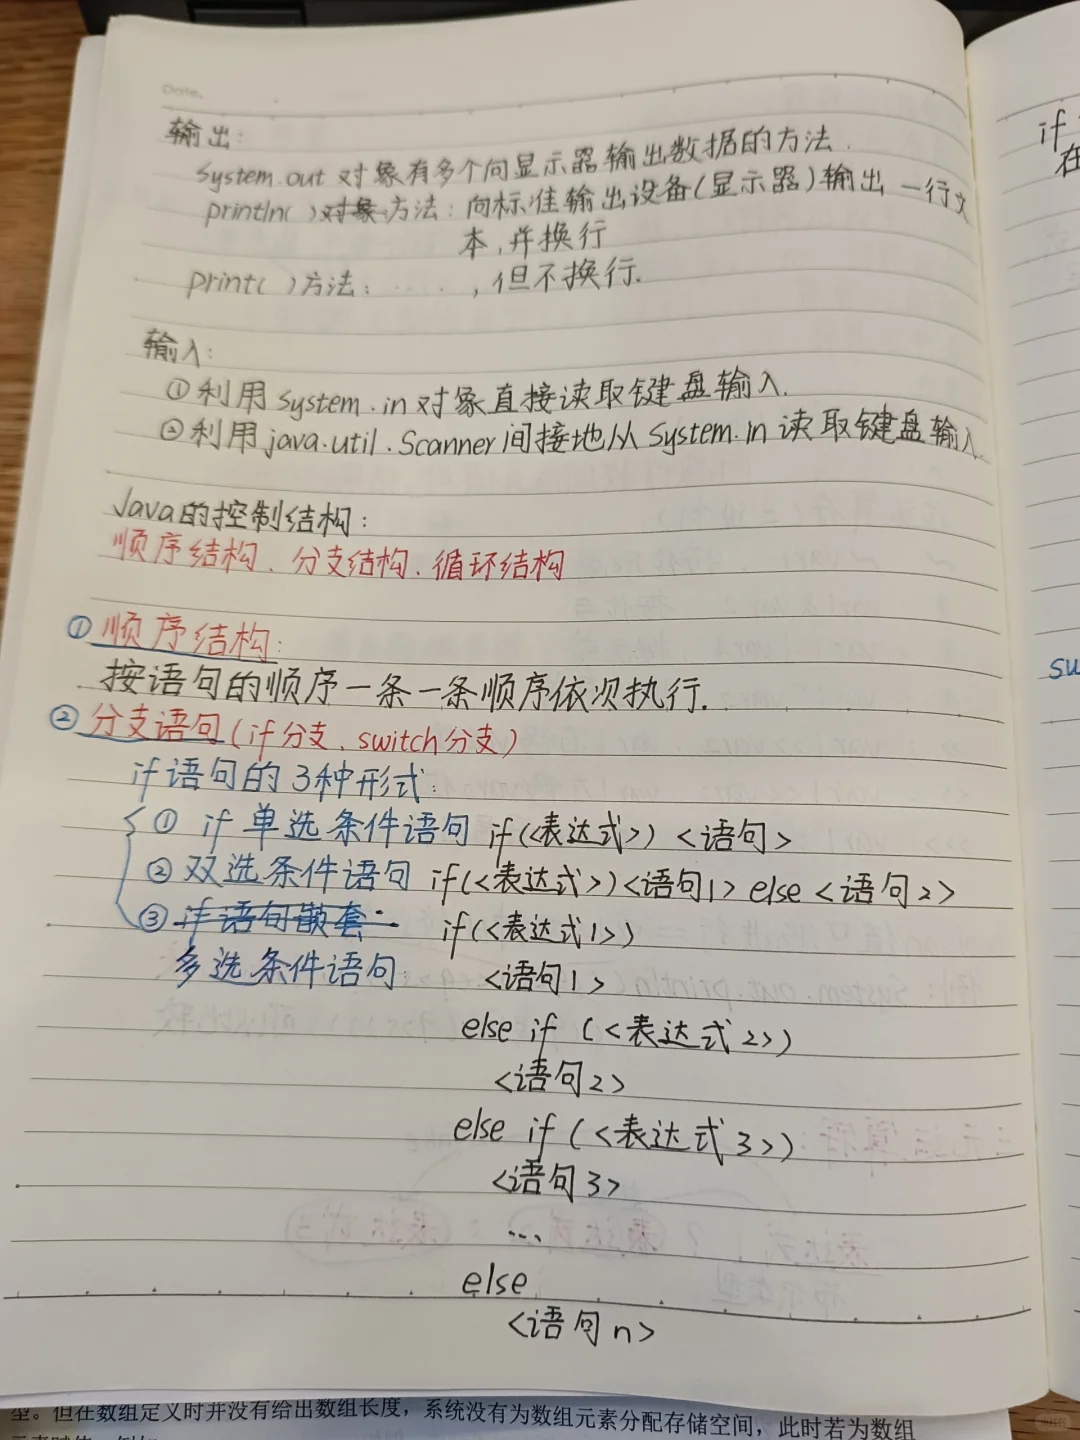 Date.
输出:
System.out 对象有多个向显示器输出数据的方法.
println( )对象方法:向标准输出设备(显示器)输出一行文
本,并换行
print( )方法: ····· ,但不换行.
输入:
①利用System.in对象直接读取键盘输入.
②利用java.util.Scanner间接地从System.in读取键盘输入.
Java的控制结构:
顺序结构、分支结构、循环结构
①顺序结构:
按语句的顺序一条一条顺序依次执行.
②分支语句(if分支、switch分支)
if语句的3种形式:
① if单选条件语句 if(<表达式>) <语句>
②双选条件语句 if(<表达式>)<语句1> else <语句2>
③if语句嵌套: if(<表达式1>)
多选条件语句: <语句1>
else if (<表达式2>)
<语句2>
else if (<表达式3>)
<语句3>
...
else
<语句n>
if
在
su
型。但在数组定义时并没有给出数组长度，系统没有为数组元素分配存储空间，此时若为数组